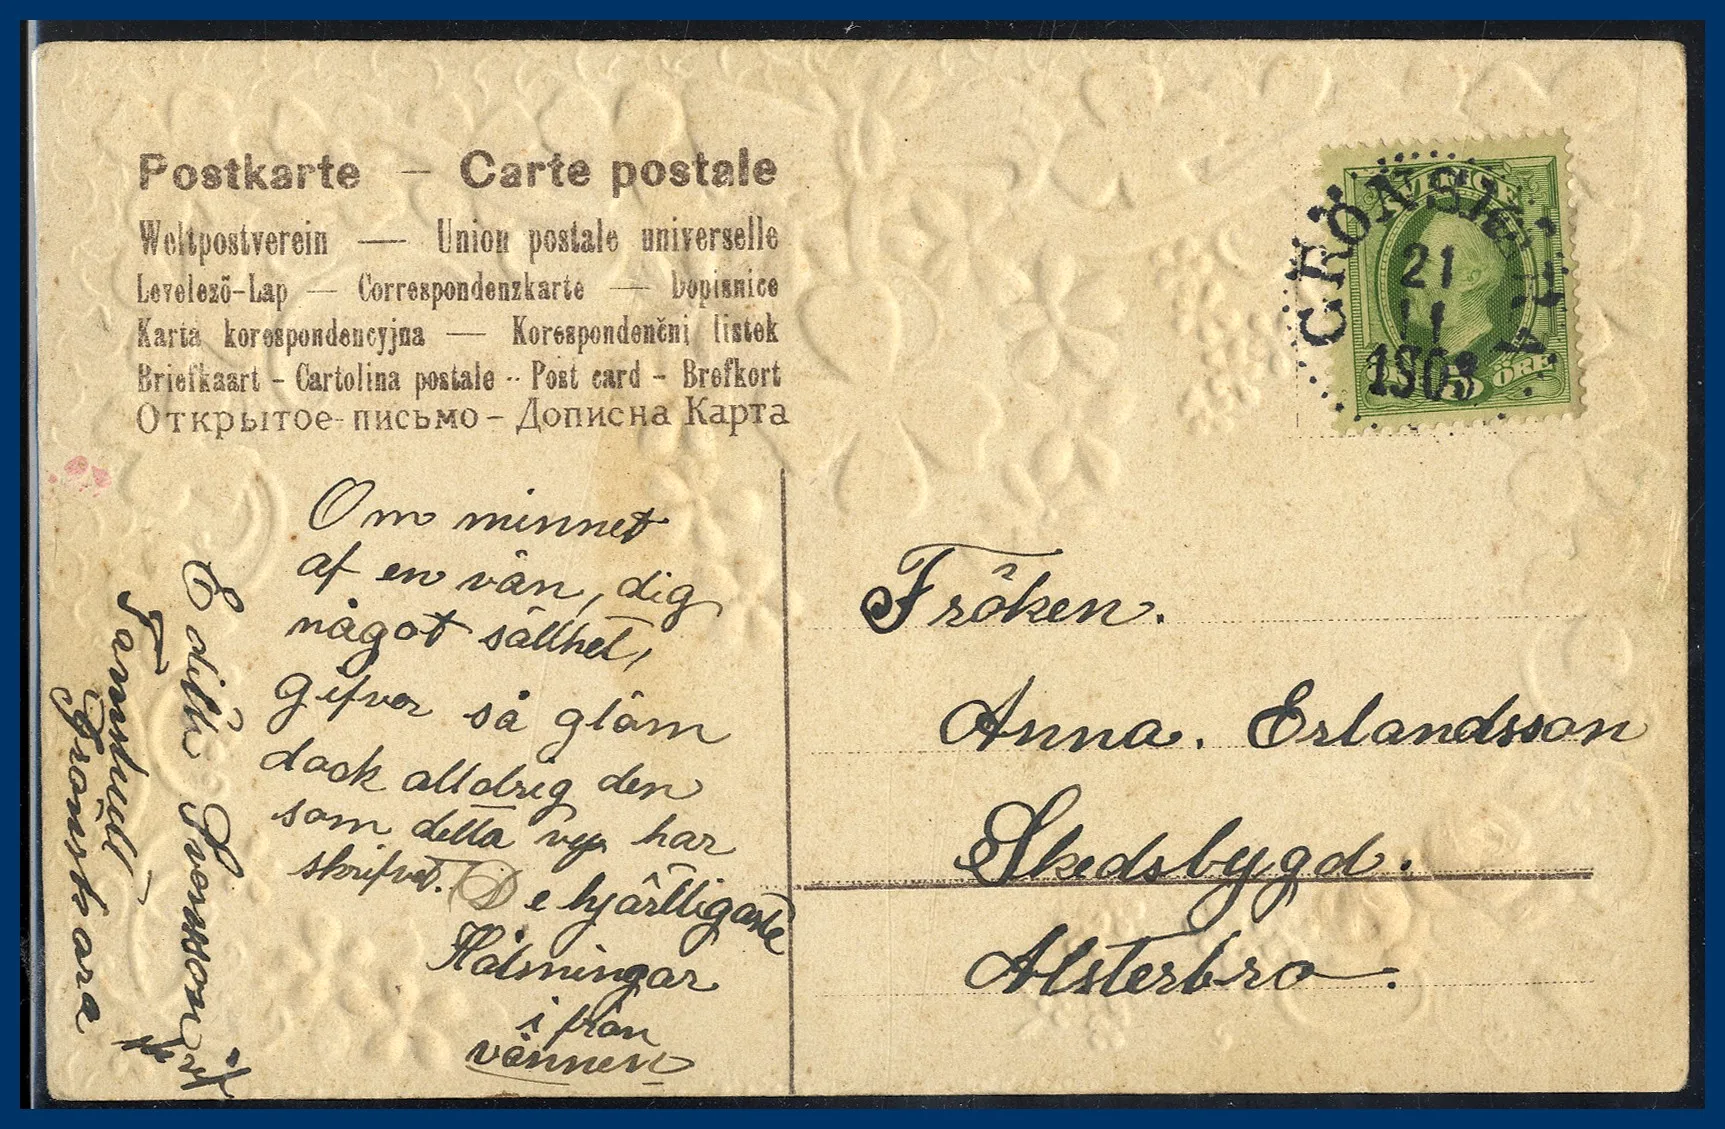 Postkarte — Carte postale
Weltpostverein — Union postale universelle
Levelező-Lap — Correspondenzkarte — Dopisnice
Karta korespondencyjna — Korespondenčni listek
Briefkaart - Cartolina postale - Post card - Brefkort
Открытое-письмо - Дописна Карта
SVERIGE
GRÖNSKÅRA
21
11
1903
5
ÖRE
Om minnet
af en vän, dig
något sällhet,
gifver så glöm
dock alldrig den
som detta vyp har
skrifvet. De hjärtligaste
Hälsningar
i från
vännen
Edith Svensson
Famshult
Grönskara
Fröken.
Anna. Erlandsson
Skedsbygd.
Alsterbro.